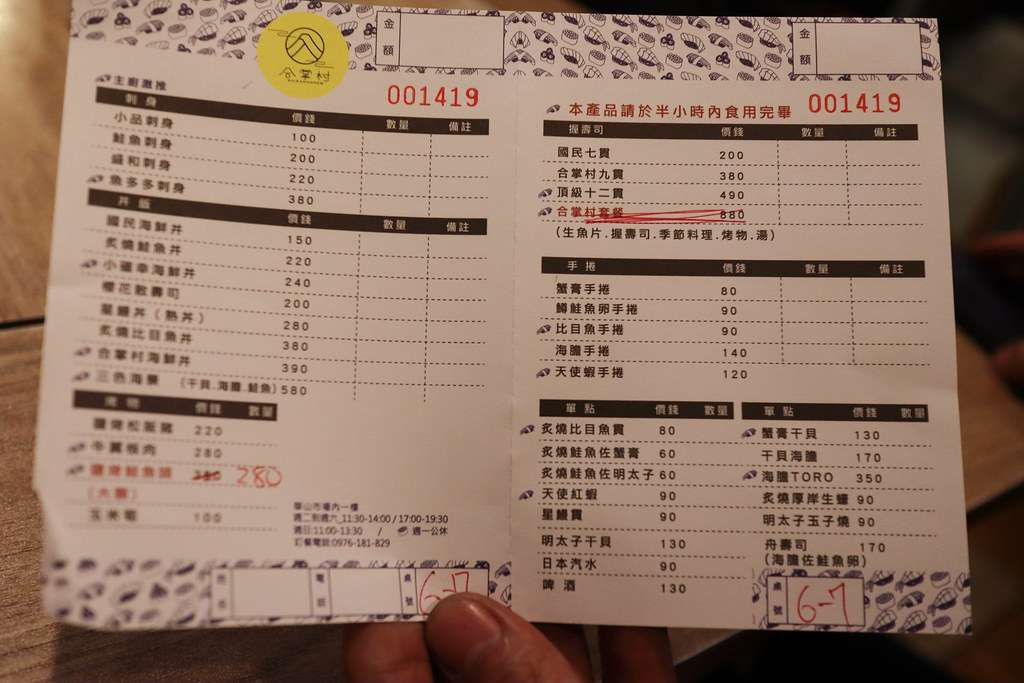 金額
金額
合掌村
主廚激推
001419
刺身 價錢 數量 備註
小品刺身 100
鮭魚刺身 200
緋和刺身 220
魚多多刺身 380
丼飯 價錢 數量 備註
國民海鮮丼 150
炙燒鮭魚丼 220
小確幸海鮮丼 240
櫻花散壽司 200
星鰻丼(熟丼) 280
炙燒比目魚丼 380
合掌村海鮮丼 390
三色海景 (干貝.海膽.鮭魚) 580
烤物 價錢 數量
鹽烤松阪豬 220
牛翼板肉 280
鹽烤鮭魚頭 380 280
玉米筍 100
華山市場內一樓
週二到週六_11:30-14:00 / 17:00-19:30
週日:11:00-13:30 / 週一公休
訂餐電話:0976-181-829
電話
桌號
6-7
本產品請於半小時內食用完畢 001419
握壽司 價錢 數量 備註
國民七貫 200
合掌村九貫 380
頂級十二貫 490
合掌村套餐 880
(生魚片.握壽司.季節料理.烤物.湯)
手捲 價錢 數量 備註
蟹膏手捲 80
鱒鮭魚卵手捲 90
比目魚手捲 90
海膽手捲 140
天使蝦手捲 120
單點 價錢 數量
炙燒比目魚貫 80
炙燒鮭魚佐蟹膏 60
炙燒鮭魚佐明太子 60
天使紅蝦 90
星鰻貫 90
明太子干貝 130
日本汽水 90
啤酒 130
單點 價錢 數量
蟹膏干貝 130
干貝海膽 170
海膽TORO 350
炙燒厚岸生蠔 90
明太子玉子燒 90
舟壽司 170
(海膽佐鮭魚卵)
桌號
6-7